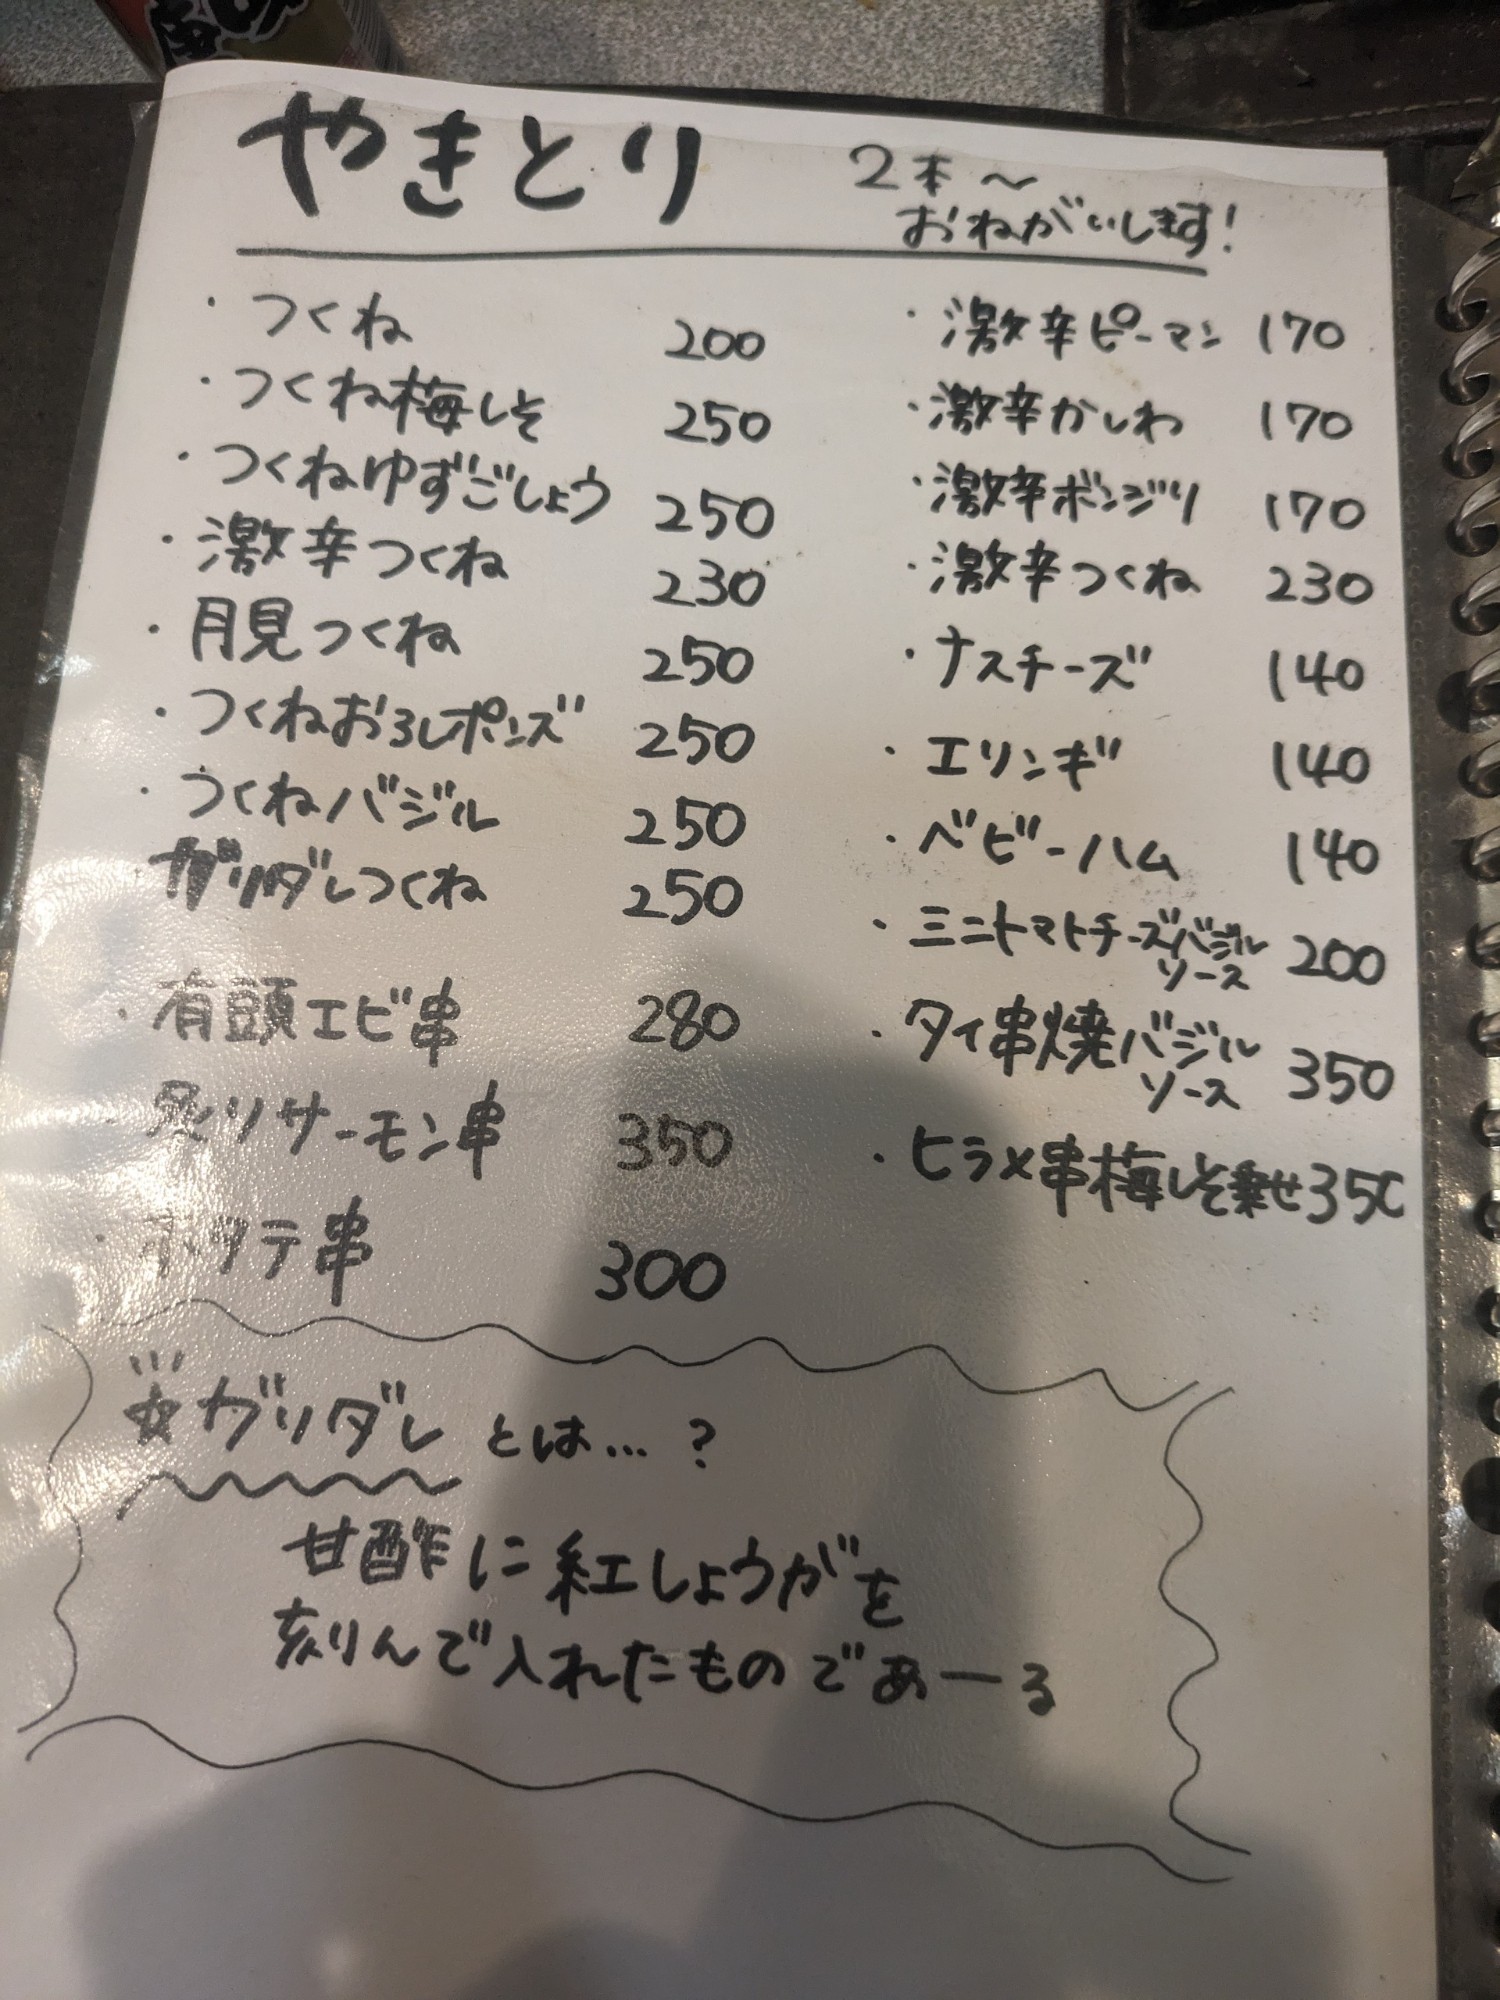 やきとり
2本〜
おねがいします!
・つくね 200
・つくね梅しそ 250
・つくねゆずごしょう 250
・激辛つくね 230
・月見つくね 250
・つくねおろしポンズ 250
・つくねバジル 250
ガリダレつくね 250
・有頭エビ串 280
・炙りサーモン串 350
・ホタテ串 300
・激辛ピーマン 170
・激辛かしわ 170
・激辛ボンジリ 170
・激辛つくね 230
・ナスチーズ 140
・エリンギ 140
・ベビーハム 140
・ミニトマトチーズバジル
ソース 200
・タイ串焼バジル
ソース 350
・ヒラメ串梅しそ乗せ 350
☆ガリダレ とは…?
甘酢に紅しょうがを
刻んで入れたものであーる